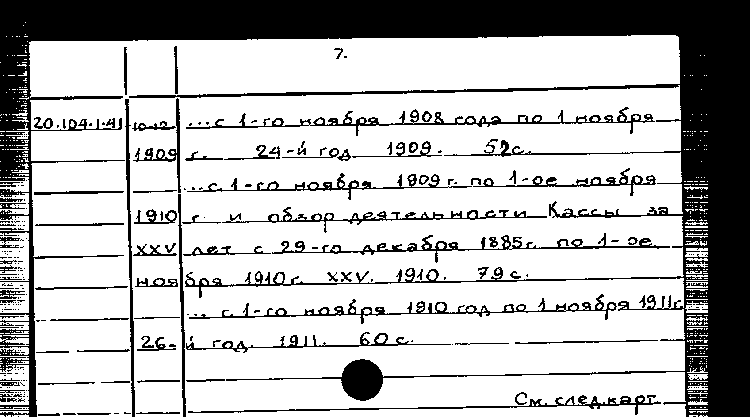 7.
20.104.1.41 10-12 ...с 1-го ноября 1908 года по 1 ноября
1909 г. 24-й год 1909. 59с.
...с 1-го ноября 1909 г. по 1-ое ноября
1910 г и обзор деятельности Кассы за
XXV лет с 29-го декабря 1885г. по 1-ое
ноября 1910г. XXV. 1910. 79с.
... с 1-го ноября 1910 год по 1 ноября 1911г
26-й год. 1911. 60с.
См. след.карт